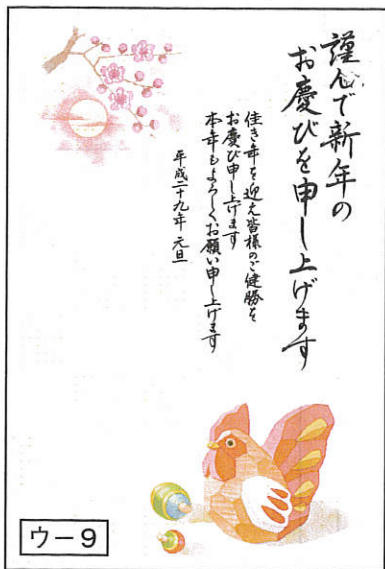 謹んで新年の
お慶びを申し上げます
佳き年を迎え皆様のご健勝を
お慶び申し上げます
本年もよろしくお願い申し上げます
平成二十九年 元旦
ウー9